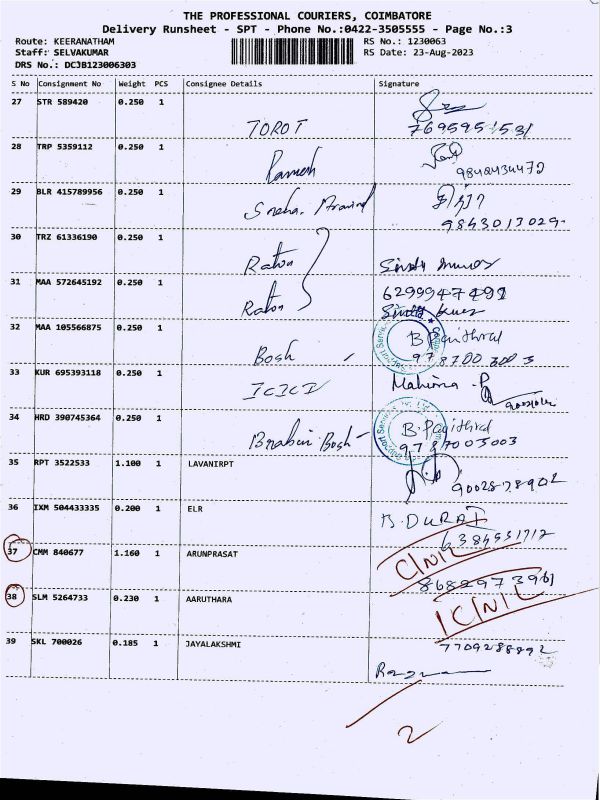 THE PROFESSIONAL COURIERS, COIMBATORE
Delivery Runsheet - SPT - Phone No.:0422-3505555 - Page No.:3
Route: KEERANATHAM
RS No.: 1230063
Staff: SELVAKUMAR
RS Date: 23-Aug-2023
DRS No.: DCJB123006303
S No Consignment No Weight PCS Consignee Details Signature
27 STR 589420 0.250 1
TOROT 7695951531
28 TRP 5359112 0.250 1
Ramesh 9848434472
29 BLR 415789956 0.250 1
Sneha. Aravind
9843013029
30 TRZ 61336190 0.250 1
Raton
31 MAA 572645192 0.250 1
6299947499
Raton
32 MAA 105566875 0.250 1
B Pavithral
Bosh 9787003003
33 KUR 695393118 0.250 1
ICICI Mahima
34 HRD 390745364 0.250 1
Bosh B. Pavithral
9787003003
35 RPT 3522533 1.100 1 LAVANIRPT
9002878902
36 IXM 504433335 0.200 1 ELR
B. DURAI
6384551712
37 CMM 840677 1.160 1 ARUNPRASAT
CNIL
8682973961
38 SLM 5264733 0.230 1 AARUTHARA
ICNIL
39 SKL 700026 0.185 1 JAYALAKSHMI
7709288892
2